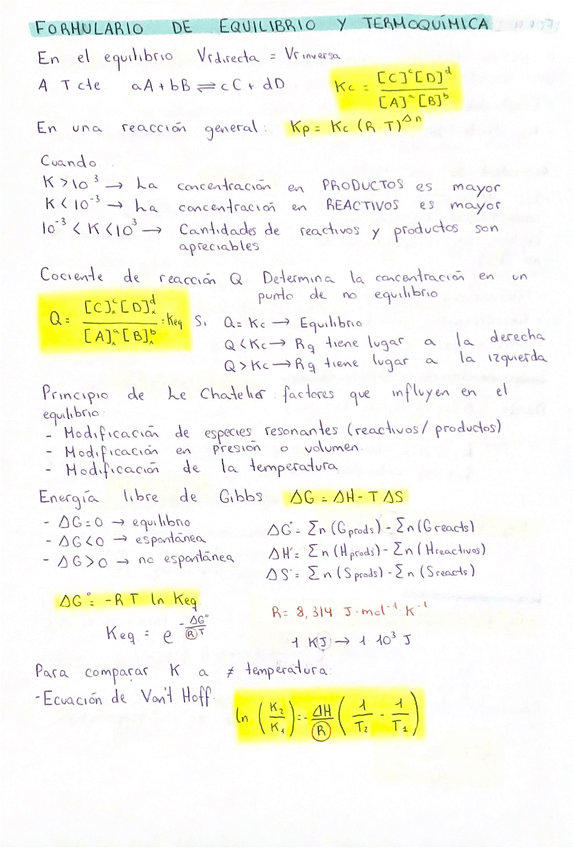 FORMULARIO DE EQUILIBRIO Y TERMOQUÍMICA
En el equilibrio Vrdirecta = Vrinversa
A T cte aA + bB ⇌ cC + dD Kc = [C]ᶜ[D]ᵈ / [A]ᵃ[B]ᵇ
En una reacción general: Kp = Kc (R T)^Δn
Cuando
K > 10³ → La concentración en PRODUCTOS es mayor
K < 10⁻³ → La concentración en REACTIVOS es mayor
10⁻³ < K < 10³ → Cantidades de reactivos y productos son
apreciables
Cociente de reacción Q Determina la concentración en un
punto de no equilibrio
Q = [C]ᶜ[D]ᵈ / [A]ᵃ[B]ᵇ Keq Si Q = Kc → Equilibrio
Q < Kc → Rq tiene lugar a la derecha
Q > Kc → Rq tiene lugar a la izquierda
Principio de Le Chatelier factores que influyen en el
equilibrio
- Modificación de especies resonantes (reactivos/productos)
- Modificación en presión o volumen
- Modificación de la temperatura
Energía libre de Gibbs ΔG = ΔH - T ΔS
- ΔG = 0 → equilibrio
- ΔG < 0 → espontánea
- ΔG > 0 → no espontánea
ΔG° = Σn (G prods) - Σn (G reacts)
ΔH° = Σn (H prods) - Σn (H reactivos)
ΔS° = Σn (S prods) - Σn (S reacts)
ΔG° = -R T ln Keq
Keq = e^(-ΔG°/RT)
R = 8,314 J·mol⁻¹ K⁻¹
1 KJ → 1 10³ J
Para comparar K a ≠ temperatura
- Ecuación de Van't Hoff ln (K₂/K₁) = - ΔH/R (1/T₂ - 1/T₁)